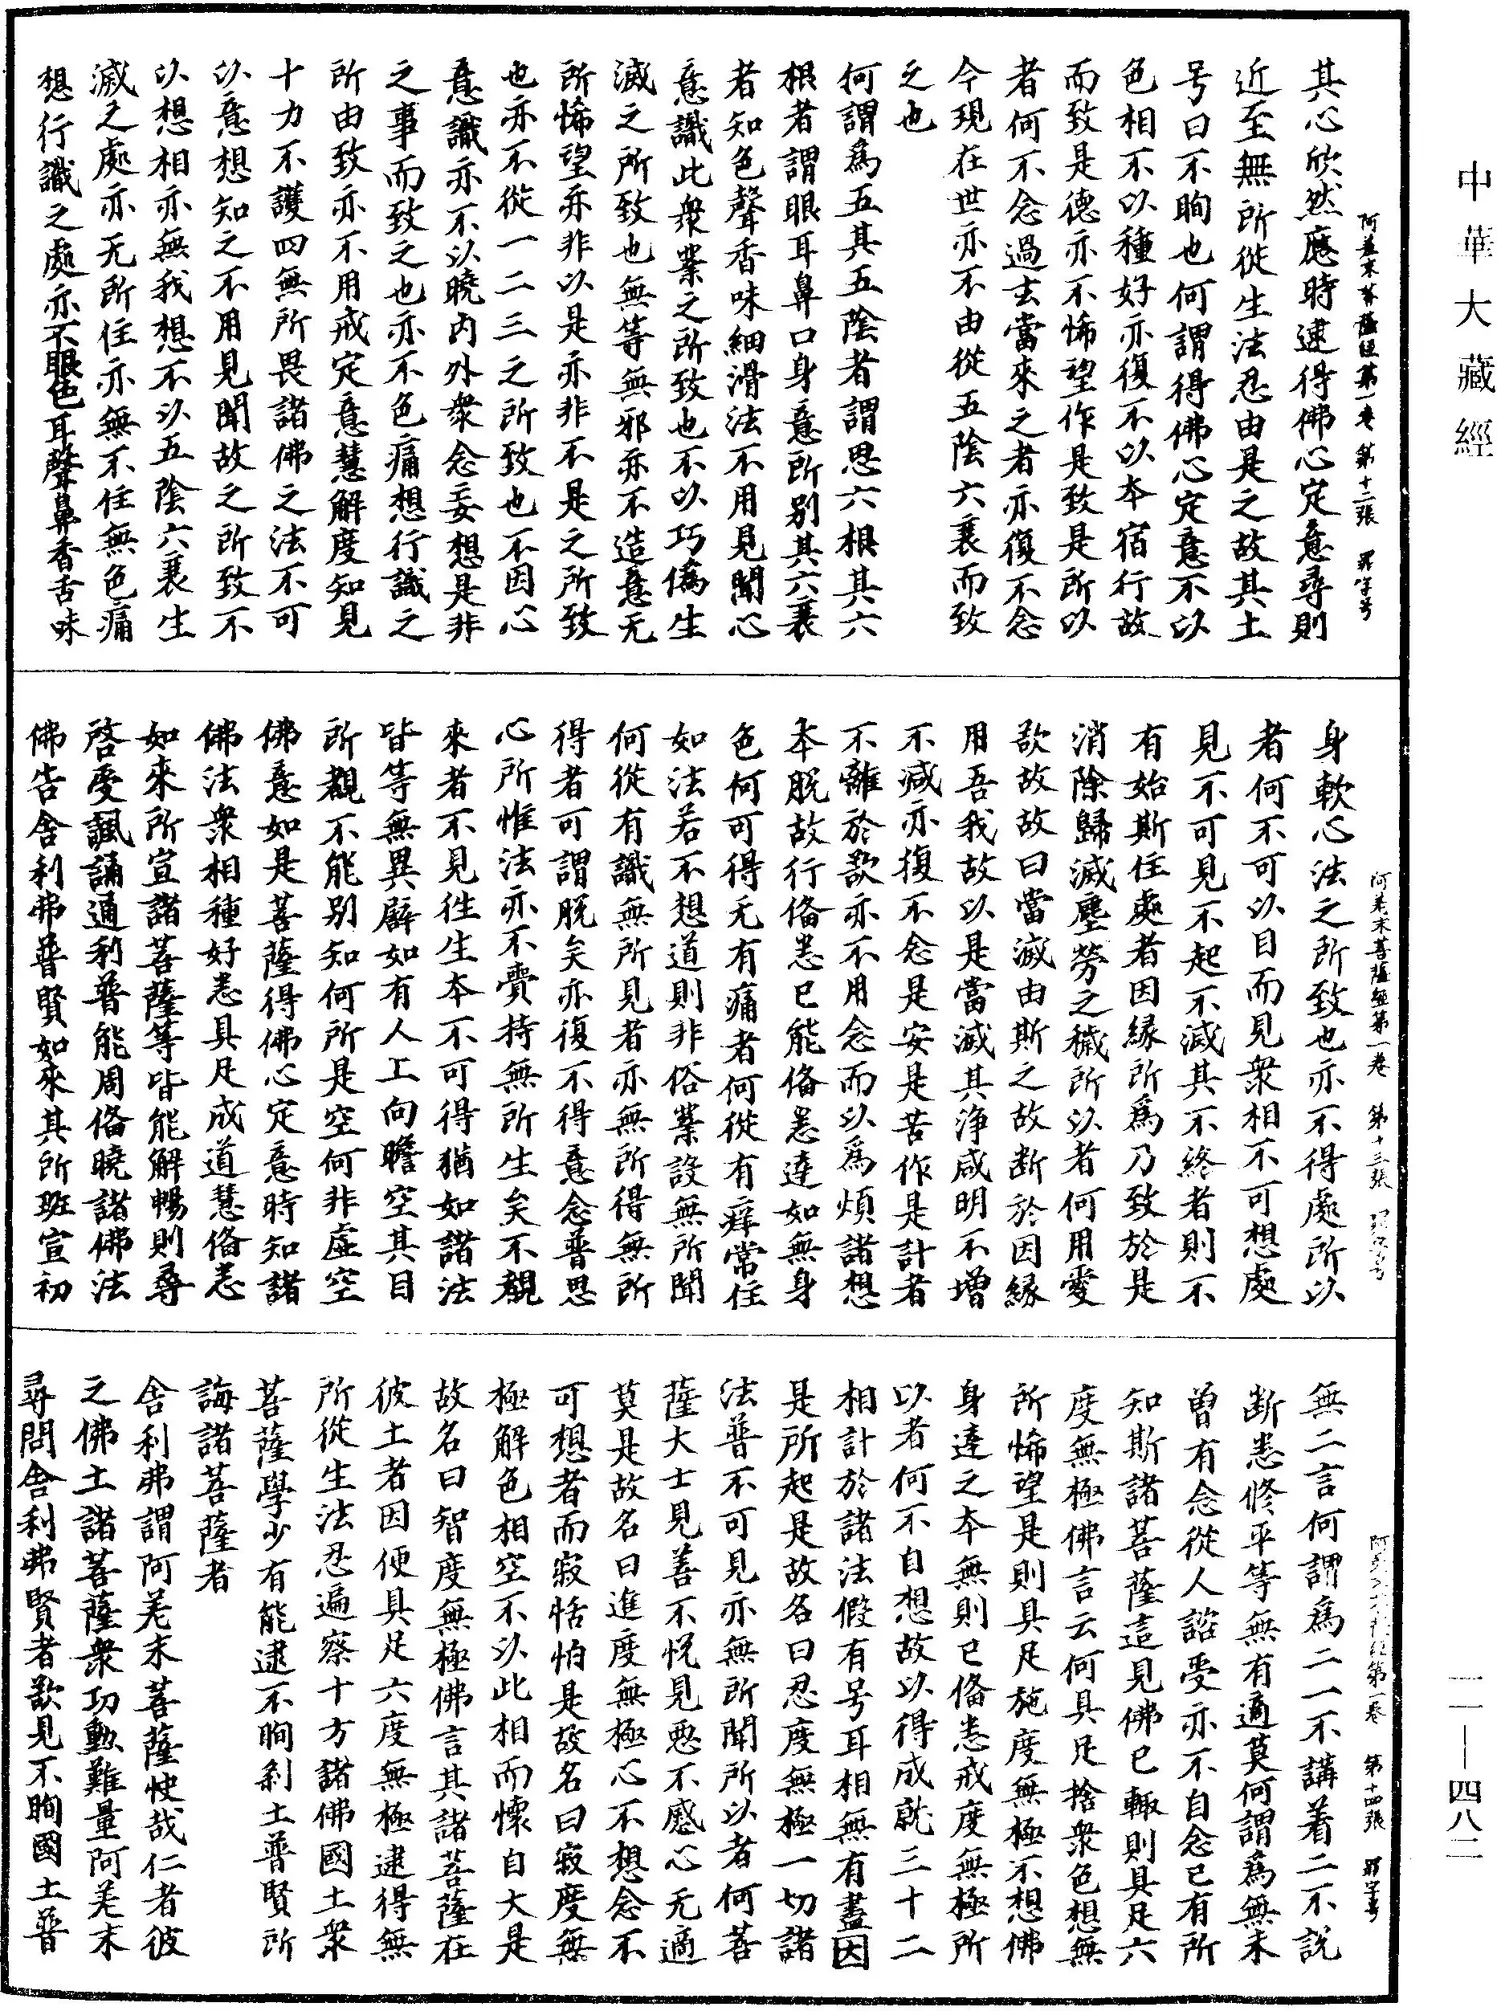 中華大藏經
阿差末菩薩經第一卷 第十二張 罪字号
其心欣然應時逮得佛心定意尋則
近至無所從生法忍由是之故其土
号曰不眴也何謂得佛心定意不以
色相不以種好亦復不以本宿行故
而致是德亦不悕望作是致是所以
者何不念過去當來之者亦復不念
今現在世亦不由從五陰六衰而致
之也
何謂為五其五陰者謂思六根其六
根者謂眼耳鼻口身意所別其六衰
者知色聲香味細滑法不用見聞心
意識此衆業之所致也不以巧偽生
滅之所致也無等無邪亦不造意无
所悕望亦非以是亦非不是之所致
也亦不從一二三之所致也不因心
意識亦不以曉內外衆念妄想是非
之事而致之也亦不色痛想行識之
所由致亦不用戒定意慧解度知見
十力不護四無所畏諸佛之法不可
以意想知之不用見聞故之所致不
以想相亦無我想不以五陰六衰生
滅之處亦无所住亦無不住無色痛
想行識之處亦不眼色耳聲鼻香舌味
阿差末菩薩經第一卷 第十三張
身軟心法之所致也亦不得處所以
者何不可以目而見衆相不可想處
見不可見不起不滅其不終者則不
有始斯住處者因緣所為乃致於是
消除歸滅塵勞之穢所以者何用愛
欲故故曰當滅由斯之故断於因緣
用吾我故以是當滅其淨咸明不增
不減亦復不念是安是苦作是計者
不離於欲亦不用念而以為煩諸想
本脫故行俻悉已能俻悉達如無身
色何可得无有痛者何從有痒常住
如法若不想道則非俗業設無所聞
何從有識無所見者亦無所得無所
得者可謂脫矣亦復不得意念普思
心所惟法亦不賷持無所生矣不覩
來者不見徃生本不可得猶如諸法
皆等無異譬如有人工向瞻空其目
所覩不能別知何所是空何非虛空
佛意如是菩薩得佛心定意時知諸
佛法衆相種好悉具足成道慧俻悉
如來所宣諸菩薩等皆能解暢則尋
啓受諷誦通利普能周俻曉諸佛法
佛告舍利弗普賢如來其所班宣初
第一卷 第十四張 罪字号
無二言何謂為二一不講着二不說
断悉修平等無有適莫何謂為無未
曾有念從人諮受亦不自念已有所
知斯諸菩薩這見佛已輙則具足六
度無極佛言云何具足捨衆色想無
所悕望是則具足施度無極不想佛
身達之本無則已俻悉戒度無極所
以者何不自想故以得成就三十二
相計於諸法假有号耳相無有盡因
是所起是故名曰忍度無極一切諸
法普不可見亦無所聞所以者何菩
薩大士見善不恱見惡不慼心无適
莫是故名曰進度無極心不想念不
可想者而寂恬怕是故名曰寂度無
極解色相空不以此相而懷自大是
故名曰智度無極佛言其諸菩薩在
彼土者因便具足六度無極逮得無
所從生法忍遍察十方諸佛國土衆
菩薩學少有能逮不眴剎土普賢所
誨諸菩薩者
舍利弗謂阿差末菩薩快哉仁者彼
之佛土諸菩薩衆功勳難量阿差末
尋問舍利弗賢者欲見不眴國土普
一一—四八二